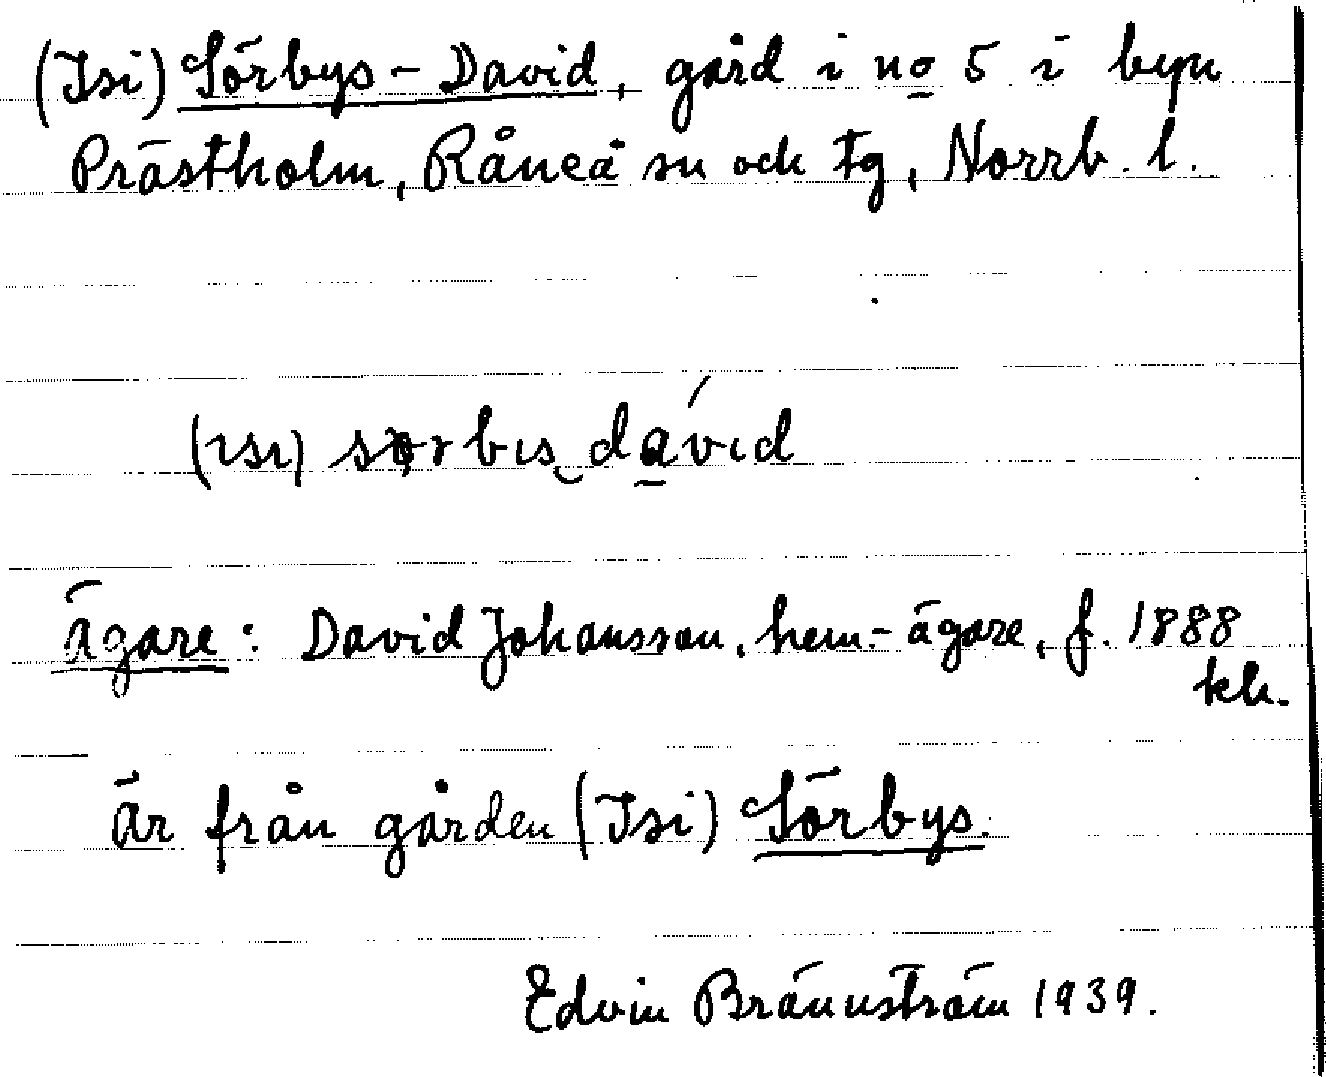 (Isi) Sörbys-David, gård i no 5 i byn
Prästholm, Råneå sn och tg, Norrb. l.
(ısı) sørbıs‿dávıd
Ägare: David Johansson, hem.-ägare, f. 1888
kh.
Är från gården (Isi) Sörbys.
Edvin Brännström 1939.